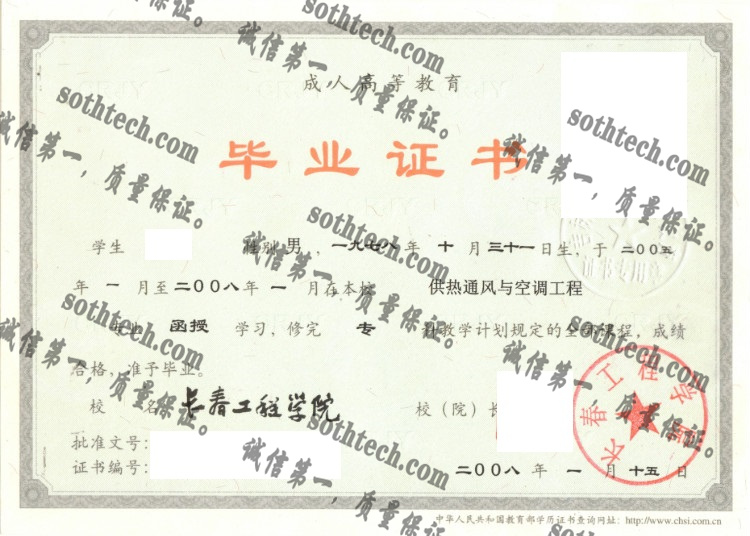 成人高等教育
毕业证书
学生 性别 男 ，一九七八 年 十 月 三十一 日生，于 二00五
年 一 月至 二00八 年 一 月在本校 供热通风与空调工程
专业 函授 学习，修完 专 科教学计划规定的全部课程，成绩
合格，准予毕业。
校 名 长春工程学院 校（院）长
批准文号：
证书编号： 二00八 年 一 月 十五 日
中华人民共和国教育部学历证书查询网址：http://www.chsi.com.cn
长春工程学院
证书专用章
sothtech.com
诚信第一，质量保证。
sothtech.com
诚信第一，质量保证。
sothtech.com
诚信第一，质量保证。
sothtech.com
诚信第一，质量保证。
sothtech.com
诚信第一，质量保证。
sothtech.com
诚信第一，质量保证。
sothtech.com
诚信第一，质量保证。
sothtech.com
诚信第一，质量保证。